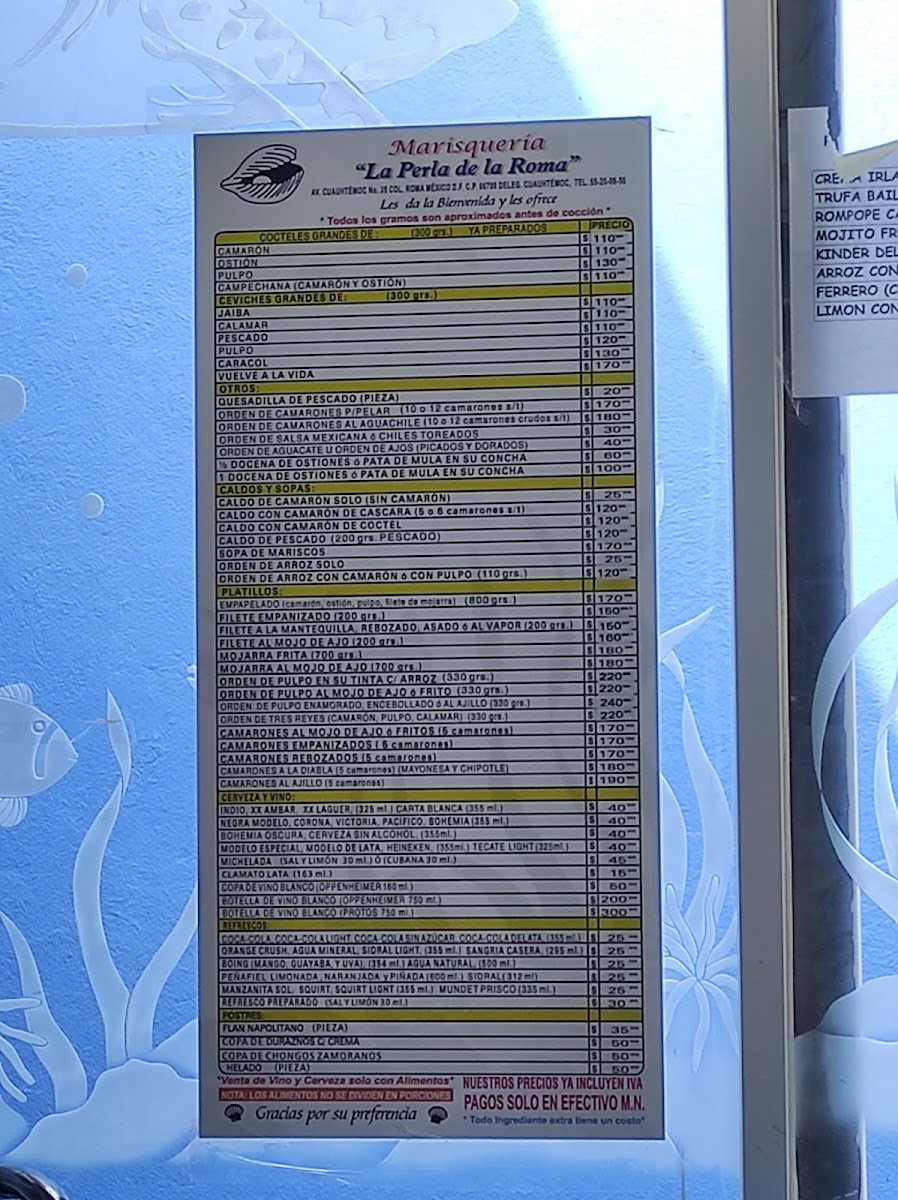 Marisquería
"La Perla de la Roma"
AV. CUAUHTÉMOC No. 35 COL. ROMA MÉXICO D.F. C.P. 06700 DELEG. CUAUHTÉMOC, TEL. 55-25-08-50
Les da la Bienvenida y les ofrece
* Todos los gramos son aproximados antes de cocción *
COCTELES GRANDES DE: (300 grs.) YA PREPARADOS PRECIO
CAMARÓN $ 110
OSTIÓN $ 110
PULPO $ 130
CAMPECHANA (CAMARÓN Y OSTIÓN) $ 110
CEVICHES GRANDES DE: (300 grs.)
JAIBA $ 110
CALAMAR $ 110
PESCADO $ 110
PULPO $ 120
CARACOL $ 130
VUELVE A LA VIDA $ 170
OTROS:
QUESADILLA DE PESCADO (PIEZA) $ 20
ORDEN DE CAMARONES P/PELAR (10 o 12 camarones s/t) $ 170
ORDEN DE CAMARONES AL AGUACHILE (10 o 12 camarones crudos s/t) $ 180
ORDEN DE SALSA MEXICANA ó CHILES TOREADOS $ 30
ORDEN DE AGUACATE U ORDEN DE AJOS (PICADOS Y DORADOS) $ 40
½ DOCENA DE OSTIONES ó PATA DE MULA EN SU CONCHA $ 60
1 DOCENA DE OSTIONES ó PATA DE MULA EN SU CONCHA $ 100
CALDOS Y SOPAS:
CALDO DE CAMARÓN SOLO (SIN CAMARÓN) $ 25
CALDO CON CAMARÓN DE CASCARA (5 o 6 camarones s/t) $ 120
CALDO CON CAMARÓN DE COCTEL $ 120
CALDO DE PESCADO (200 grs. PESCADO) $ 120
SOPA DE MARISCOS $ 170
ORDEN DE ARROZ SOLO $ 25
ORDEN DE ARROZ CON CAMARÓN ó CON PULPO (110 grs.) $ 120
PLATILLOS:
EMPAPELADO (camarón, ostión, pulpo, filete de mojarra) (800 grs.) $ 170
FILETE EMPANIZADO (200 grs.) $ 150
FILETE A LA MANTEQUILLA, REBOZADO, ASADO ó AL VAPOR (200 grs.) $ 160
FILETE AL MOJO DE AJO (200 grs.) $ 160
MOJARRA FRITA (700 grs.) $ 180
MOJARRA AL MOJO DE AJO (700 grs.) $ 180
ORDEN DE PULPO EN SU TINTA C/ ARROZ (330 grs.) $ 220
ORDEN DE PULPO AL MOJO DE AJO ó FRITO (330 grs.) $ 220
ORDEN DE PULPO ENAMORADO, ENCEBOLLADO ó AL AJILLO (330 grs.) $ 240
ORDEN DE TRES REYES (CAMARÓN, PULPO, CALAMAR) (330 grs.) $ 220
CAMARONES AL MOJO DE AJO ó FRITOS (5 camarones) $ 170
CAMARONES EMPANIZADOS ( 5 camarones) $ 170
CAMARONES REBOZADOS (5 camarones) $ 170
CAMARONES A LA DIABLA (5 camarones) (MAYONESA Y CHIPOTLE) $ 180
CAMARONES AL AJILLO (5 camarones) $ 190
CERVEZA Y VINO:
INDIO, XX AMBAR, XX LAGUER, (325 ml.) CARTA BLANCA (355 ml.) $ 40
NEGRA MODELO, CORONA, VICTORIA, PACÍFICO, BOHEMIA (355 ml.) $ 40
BOHEMIA OSCURA, CERVEZA SIN ALCOHOL, (355ml.) $ 40
MODELO ESPECIAL, MODELO DE LATA, HEINEKEN, (355ml.) TECATE LIGHT (325ml.) $ 40
MICHELADA (SAL Y LIMÓN 30 ml.) Ó (CUBANA 30 ml.) $ 45
CLAMATO LATA (163 ml.) $ 15
COPA DE VINO BLANCO (OPPENHEIMER 160 ml.) $ 50
BOTELLA DE VINO BLANCO (OPPENHEIMER 750 ml.) $ 200
BOTELLA DE VINO BLANCO (PROTOS 750 ml.) $ 300
REFRESCOS:
COCA-COLA, COCA-COLA LIGHT, COCA-COLA SIN AZÚCAR, COCA-COLA DE LATA, (355 ml.) $ 25
ORANGE CRUSH, AGUA MINERAL, SIDRAL LIGHT, (355 ml.) SANGRIA CASERA, (295 ml.) $ 25
BOING (MANGO, GUAYABA, Y UVA), (354 ml.) AGUA NATURAL, (500 ml.) $ 25
PEÑAFIEL LIMONADA, NARANJADA y PIÑADA (600 ml.) SIDRAL (312 ml) $ 25
MANZANITA SOL, SQUIRT, SQUIRT LIGHT (355 ml.) MUNDET PRISCO (335 ml.) $ 25
REFRESCO PREPARADO (SAL Y LIMÓN 30 ml.) $ 30
POSTRES:
FLAN NAPOLITANO (PIEZA) $ 35
COPA DE DURAZNOS C/ CREMA $ 50
COPA DE CHONGOS ZAMORANOS $ 50
HELADO (PIEZA) $ 50
"Venta de Vino y Cerveza solo con Alimentos"
NOTA: LOS ALIMENTOS NO SE DIVIDEN EN PORCIONES
Gracias por su preferencia
NUESTROS PRECIOS YA INCLUYEN IVA
PAGOS SOLO EN EFECTIVO M.N.
* Todo Ingrediente extra tiene un costo*
CREMA IRLA
TRUFA BAIL
ROMPOPE CA
MOJITO FR
KINDER DEL
ARROZ CON
FERRERO (C
LIMON CON